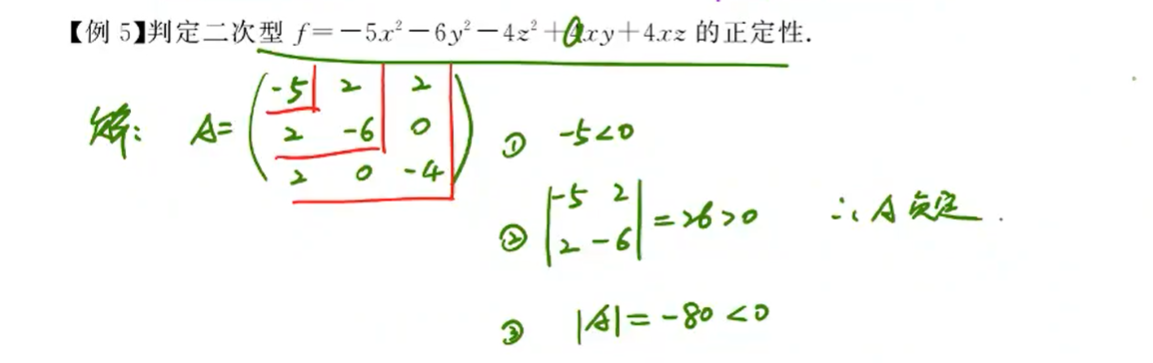 【例 5】判定二次型 f=-5x²-6y²-4z²+4xy+4xz 的正定性.
解: A= (-5 2 2
2 -6 0
2 0 -4)
① -5<0
② |-5 2
2 -6| =26>0 ∴A负定.
③ |A|=-80<0